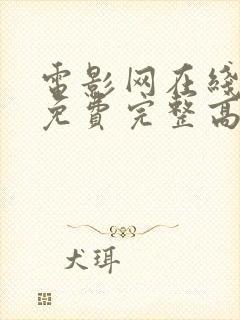 電影网在綫
免費完整高
犬珥